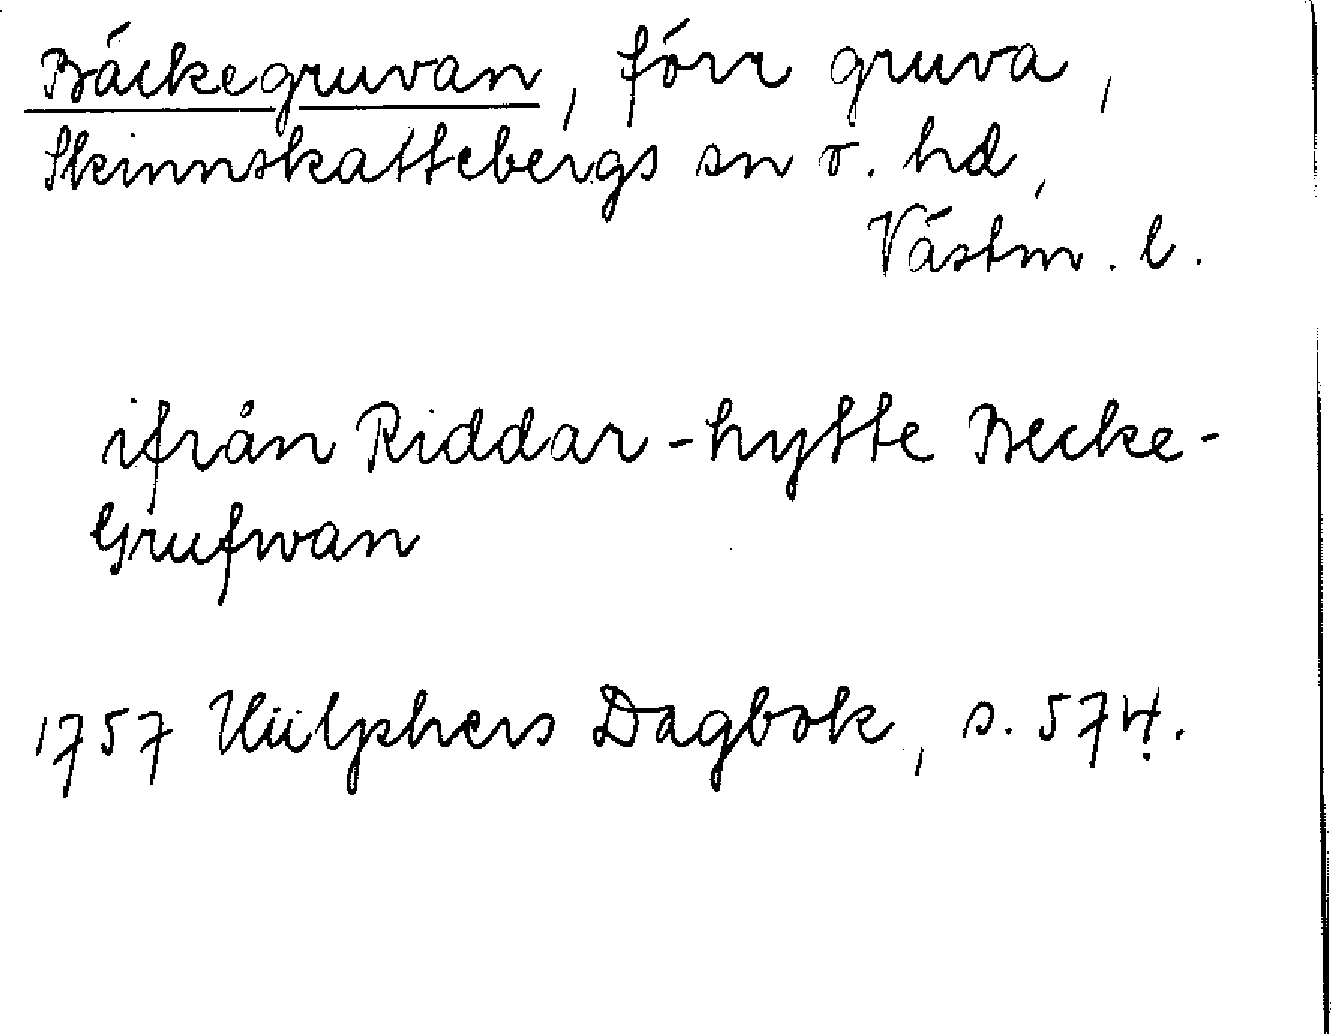 Bäckegruvan, förr gruva,
Skinnskattebergs sn o. hd,
Västm. l.
ifrån Riddar-hytte Becke-
Grufwan
1757 Hülphers Dagbok, s. 574.